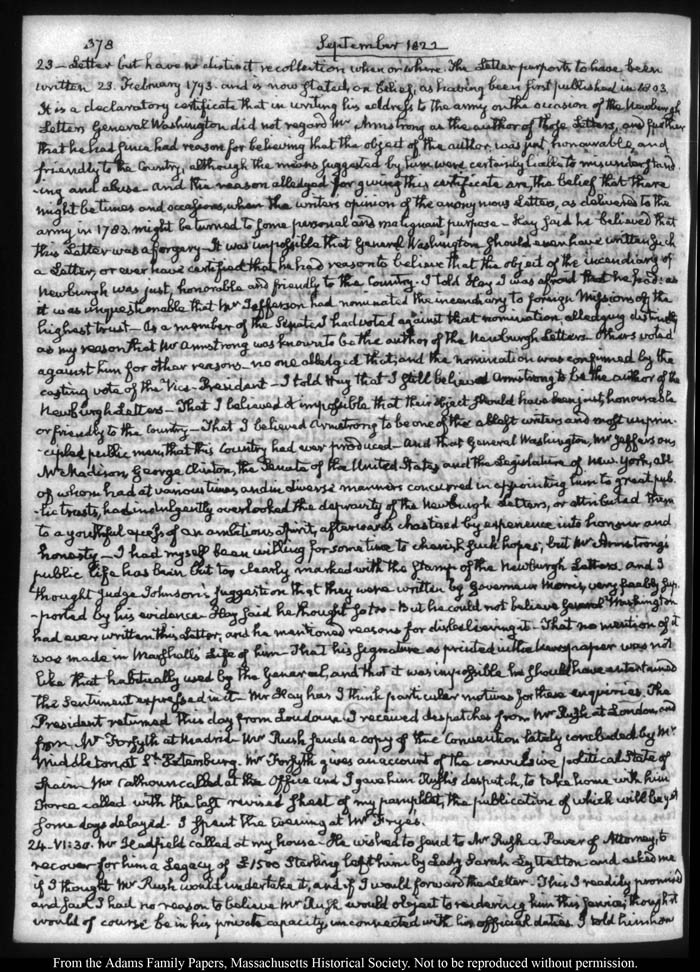 378 September 1822
23 – Letter but have no distinct recollection when or where. The Letter purports to have been
written 23. February 1793. and is now stated, on belief, as having been first published in 1803.
It is a declaratory certificate that in writing his address to the army on the occasion of the Newburgh
Letters General Washington did not regard Mr Armstrong as the author of those Letters, and further
that he had since had reason for believing that the object of the author was just, honourable, and
friendly to the Country, although the means suggested by him were certainly liable to misunderstand
-ing and abuse – and the reason alledged for giving this certificate are, the belief that there
might be times and occasions, when the writers opinion of the anonymous Letters, as delivered to the
army in 1783. might be turned to some personal and malignant purpose – Hay said he believed that
this Letter was a forgery – It was impossible that General Washington should ever have written such
a Letter, or ever have certified that he had reason to believe that the object of the incendiary of
Newburgh was just, honorable and friendly to the Country. I told Hay I was afraid that he had: as
it was unquestionable that Mr Jefferson had nominated the incendiary to foreign Missions of the
highest trust – As a member of the Senate I had voted against that nomination alledging distinctly
as my reason that Mr Armstrong was known to be the author of the Newburgh Letters. Others voted
against him for other reasons – no one alledged that; and the nomination was confirmed by the
casting vote of the Vice-President – I told Hay that I still believed Armstrong to be the author of the
Newburgh Letters – That I believed it impossible that their object should have been just, honourable
or friendly to the Country – That I believed Armstrong to be one of the ablest writers and most unprin-
cipled public men that this Country had ever produced – And that General Washington, Mr Jefferson,
Mr Madison, George Clinton, the Senate of the United States and the Legislature of New-York, all
of whom had at various times, and in diverse manners concurred in appointing him to great pub-
-lic trusts, had indulgently overlooked the depravity of the Newburgh Letters, or attributed them
to a youthful excess of an ambitious spirit, afterwards chastised by experience into honour and
honesty – I had myself been willing for some time to cherish such hopes; but Mr Armstrong's
public life has been but too clearly marked with the stamp of the Newburgh Letters. and I
thought Judge Johnson's suggestion that they were written by Governeur Morris, very feebly sup-
-ported by his evidence. Hay said he thought so too – But he could not believe General Washington
had ever written this Letter, and he mentioned reasons for disbelieving it – That no mention of it
was made in Marshall's Life of him – That his signature as printed in the Newspaper was not
like that habitually used by the General, and that it was impossible he should have entertained
the Sentiment expressed in it – Mr Hay has I think particular motives for these enquiries. The
President returned this day from Loudoun. I received despatches from Mr Rush at London, and
from Mr Forsyth at Madrid. Mr Rush sends a copy of the Convention lately concluded by Mr
Middleton, at St. Petersburg. Mr Forsyth gives an account of the convulsive political State of
Spain. Mr Calhoun called at the Office and I gave him Rush's despatch, to take home with him
Force called with the last revised sheet of my pamphlet, the publication of which will be yet
some days delayed. I spent the Evening at Mr Fryes.
24 – VI:30. Mr Hadfield called at my house – He wished to send to Mr Rush a Power of Attorney, to
recover for him a Legacy of £1500 Sterling left him by Lady Sarah Lyttelton and asked me
if I thought Mr Rush would undertake it, and if I would forward the Letter. This I readily promised
and said I had no reason to believe Mr Rush would object to rendering him this service; though it
would of course be in his private capacity, unconnected with his official duties. I told him how
From the Adams Family Papers, Massachusetts Historical Society. Not to be reproduced without permission.